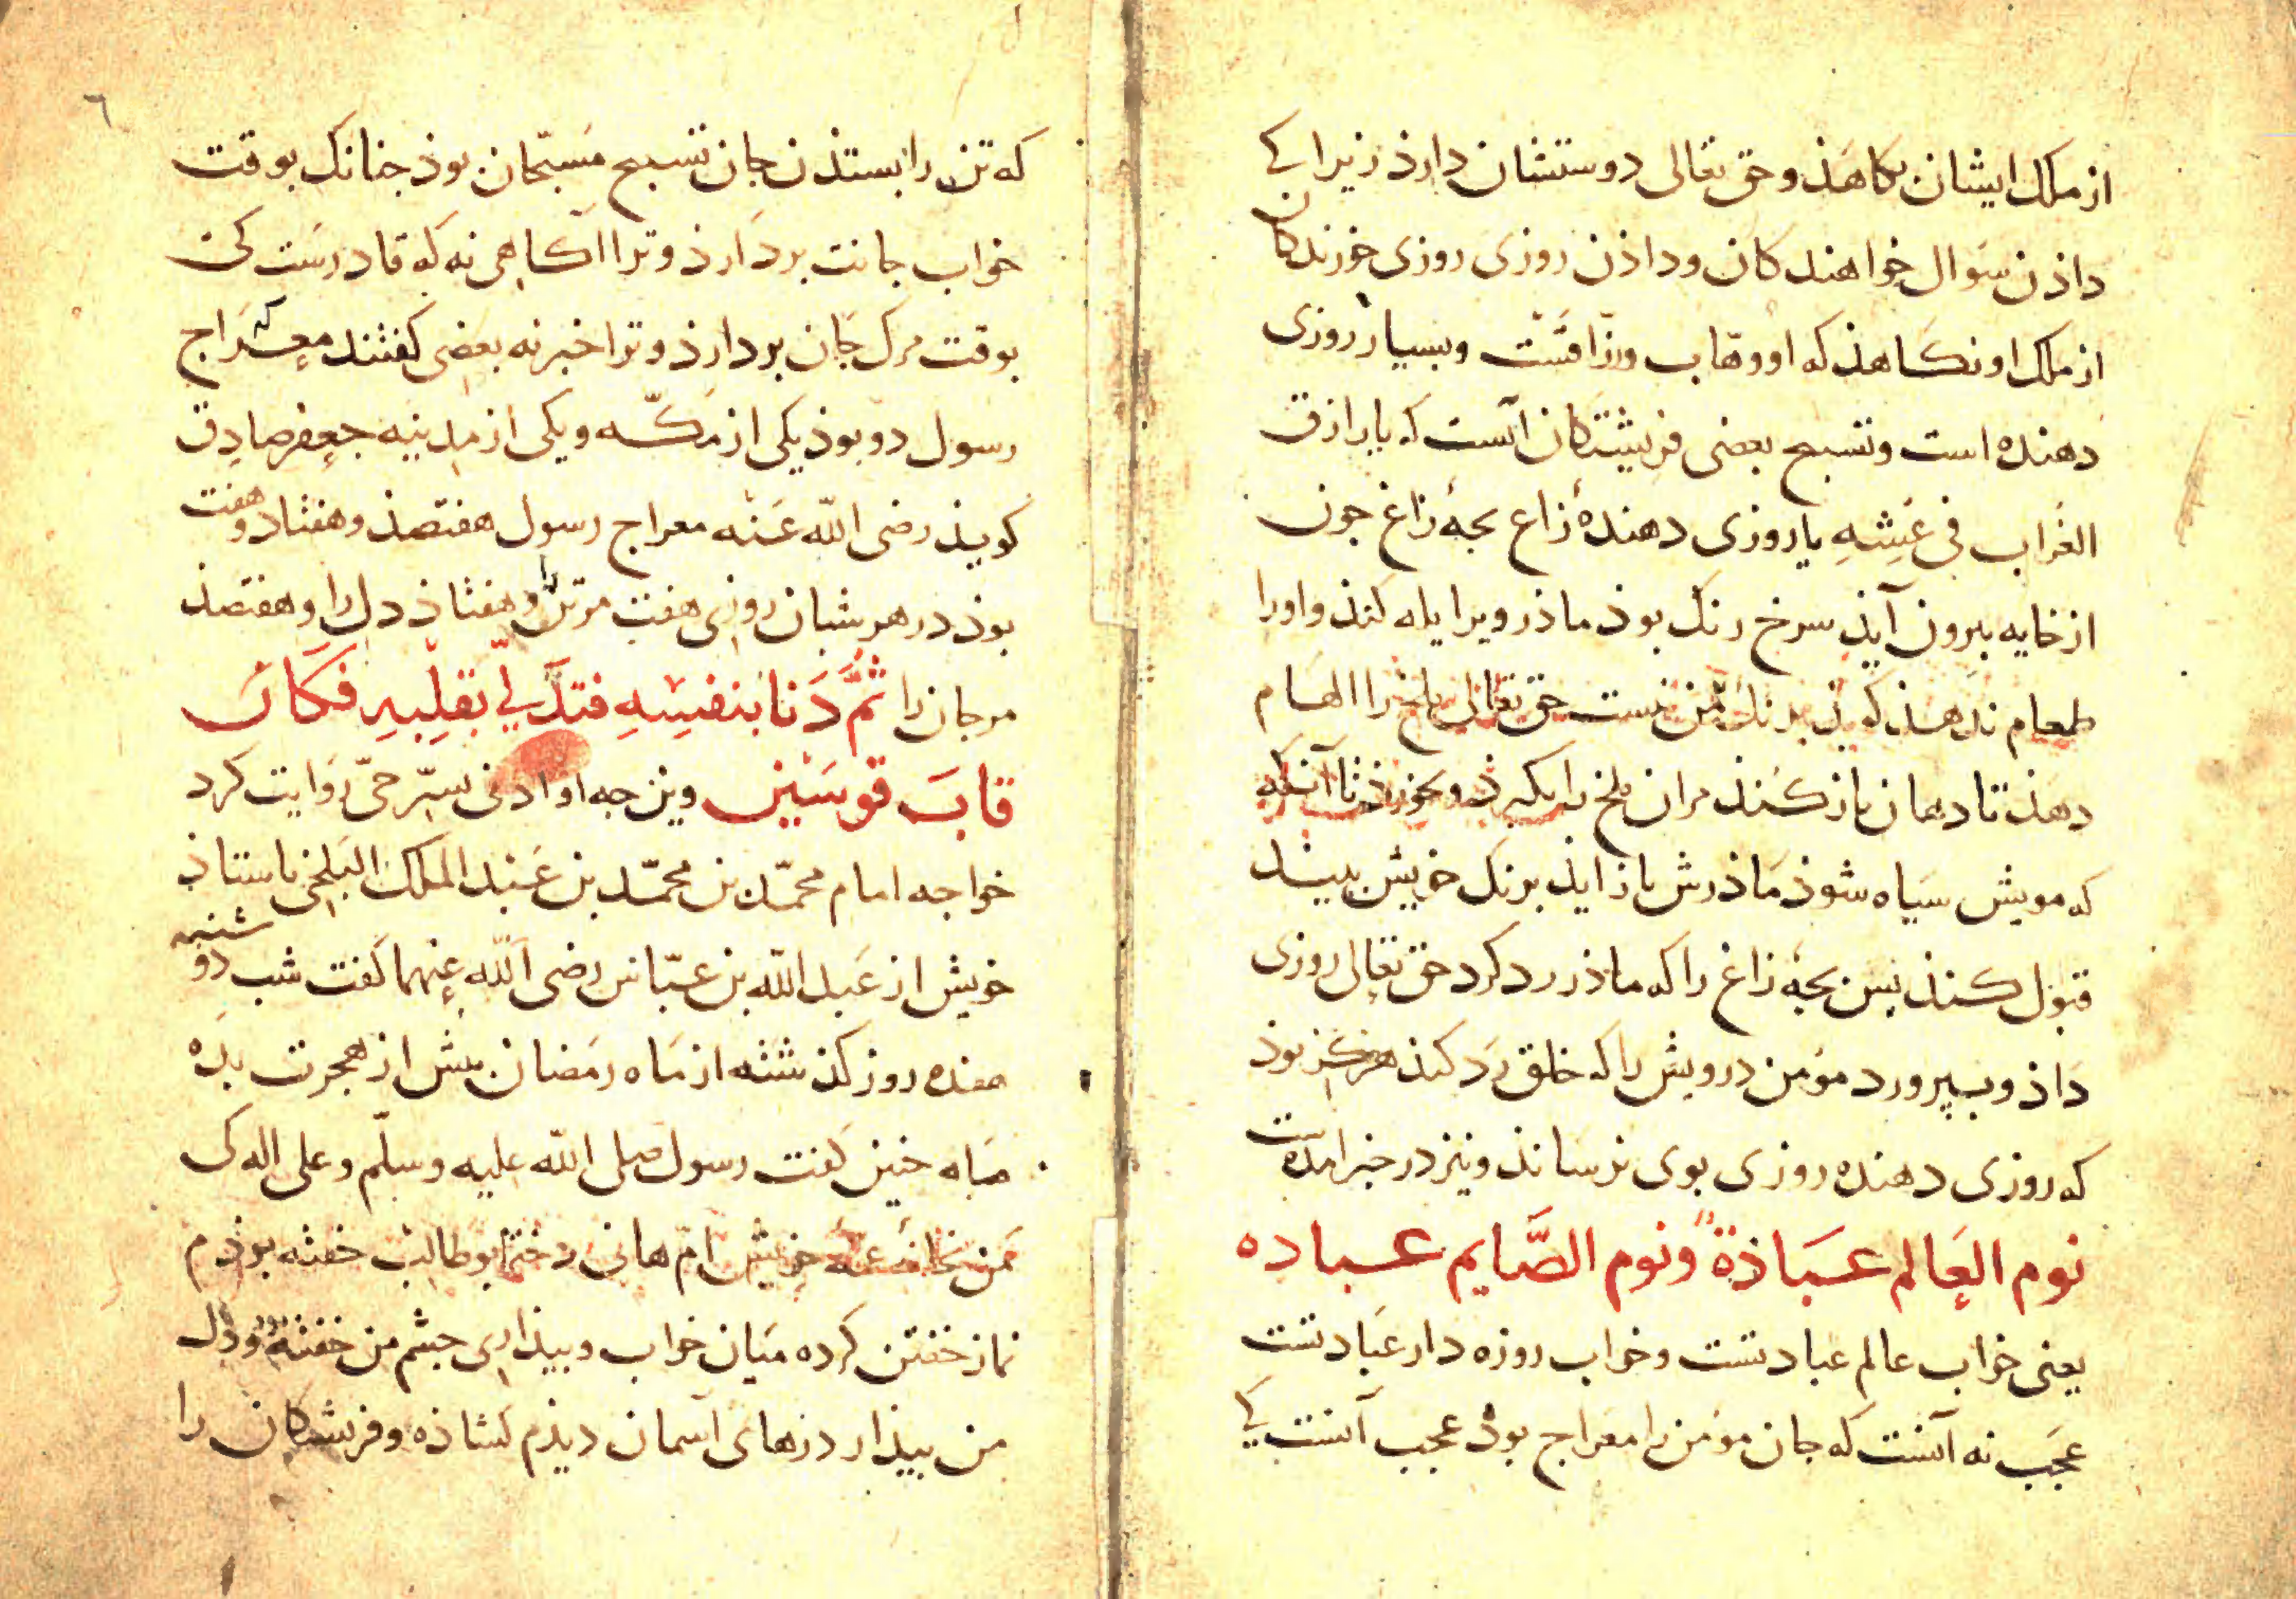 از ملک ایشان بکاهذ و حق تعالی دوستشان دارذ زیرا کی
داذن سوال خواهندکان و داذن روزی روزی خورندکان
از ملک او نکاهذ که او وهّاب و رزّاقست و بسیار روزی
دهنده است و تسبیح بعضی فریشتکان آنست که یا رازق
الغُراب فی عَشِّهِ یا روزی دهندهٔ زاغ بجهٔ زاغ جون
از خایه بیرون آیذ سرخ رنک بوذ ماذر ویرا یله کنذ و اورا
طعام ندهذ کویذ برنک من نیست حق تعالی ملخ را الهام
دهذ تا دهان باز کنذ مران ملخ را بکیرذ و بخورذ تا آنکه
که مویش سیاه شوذ ماذرش باز ایذ برنک خویش بیند
قبول کنذ بس بجهٔ زاغ را که ماذر رد کرد حق تعالی روزی
داذ و بپرورد مؤمن درویش را که خلق رد کنذ هرکز بوذ
که روزی دهنده روزی بوی نرساند و نیز در خبر امده است
نوم العالم عباذة ونوم الصّایم عباده
یعنی خواب عالم عبادتست و خواب روزه دار عبادتست
عجب نه آنست که جان مؤمن را معراج بوذ عجب آنست کی
٦
که تن را بستذن جان تسبیح مسبّحان بوذ جنانک بوقت
خواب جانت بردارذ و ترا آکاهی نه که قادرست کی
بوقت مرک جان بردارذ و ترا خبر نه بعضی کفتند که معراج
رسول دو بوذ یکی از مکّه و یکی از مدینه جعفر صادق
کویذ رضی اللّه عنه معراج رسول هفتصذ و هفتاد و هفت
بوذ در هر شبان روزی هفت مر تن را و هفتاذ دل را و هفتصذ
مر جان را ثمّ دَنا بنفسِهِ فتدلّی بقلبِهِ فکان
قابَ قوسین وین جه او ادنی بسّر حیّ روایت کرد
خواجه امام محمّد بن محمّد بن عبد الملک البلخی باستاذ
خویش از عبد اللّه بن عبّاس رضی اللّه عنهما کفت شب دوشنبه
هفده روز کذشته از ماه رمضان بیش از هجرت بده
ماه جنین کفت رسول صلی اللّه علیه وسلّم وعلی اله کی
من بخانهٔ عمهٔ خویش امّ هانی دختر ابو طالب خفته بوذم
نماز خفتن کرده میان خواب و بیذاری جشم من خفته بوذ و دل
من بیذار درهای آسمان دیذم کشاذه و فریشتکان را